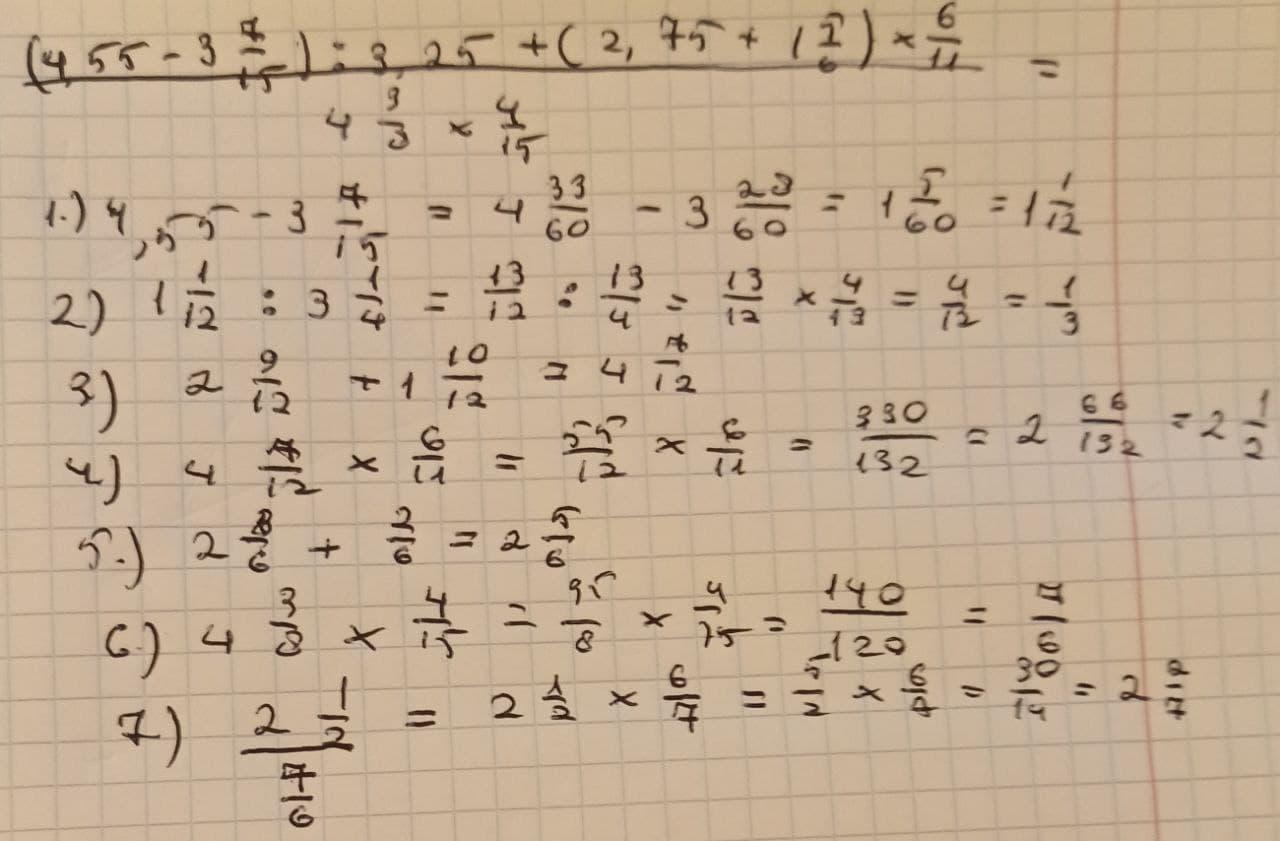 (4,55 - 3 7/15) : 3,25 + (2,75 + 1 5/6) × 6/11 =
4 3/8 × 4/15
1.) 4,55 - 3 7/15 = 4 33/60 - 3 28/60 = 1 5/60 = 1 1/12
2) 1 1/12 : 3 1/4 = 13/12 : 13/4 = 13/12 × 4/13 = 4/12 = 1/3
3) 2 9/12 + 1 10/12 = 4 7/12
4) 4 7/12 × 6/11 = 55/12 × 6/11 = 330/132 = 2 66/132 = 2 1/2
5.) 2 3/6 + 2/6 = 2 5/6
6.) 4 3/8 × 4/15 = 35/8 × 4/15 = 140/120 = 7/6
7) 2 1/2 / 7/6 = 2 1/2 × 6/7 = 5/2 × 6/7 = 30/14 = 2 2/7